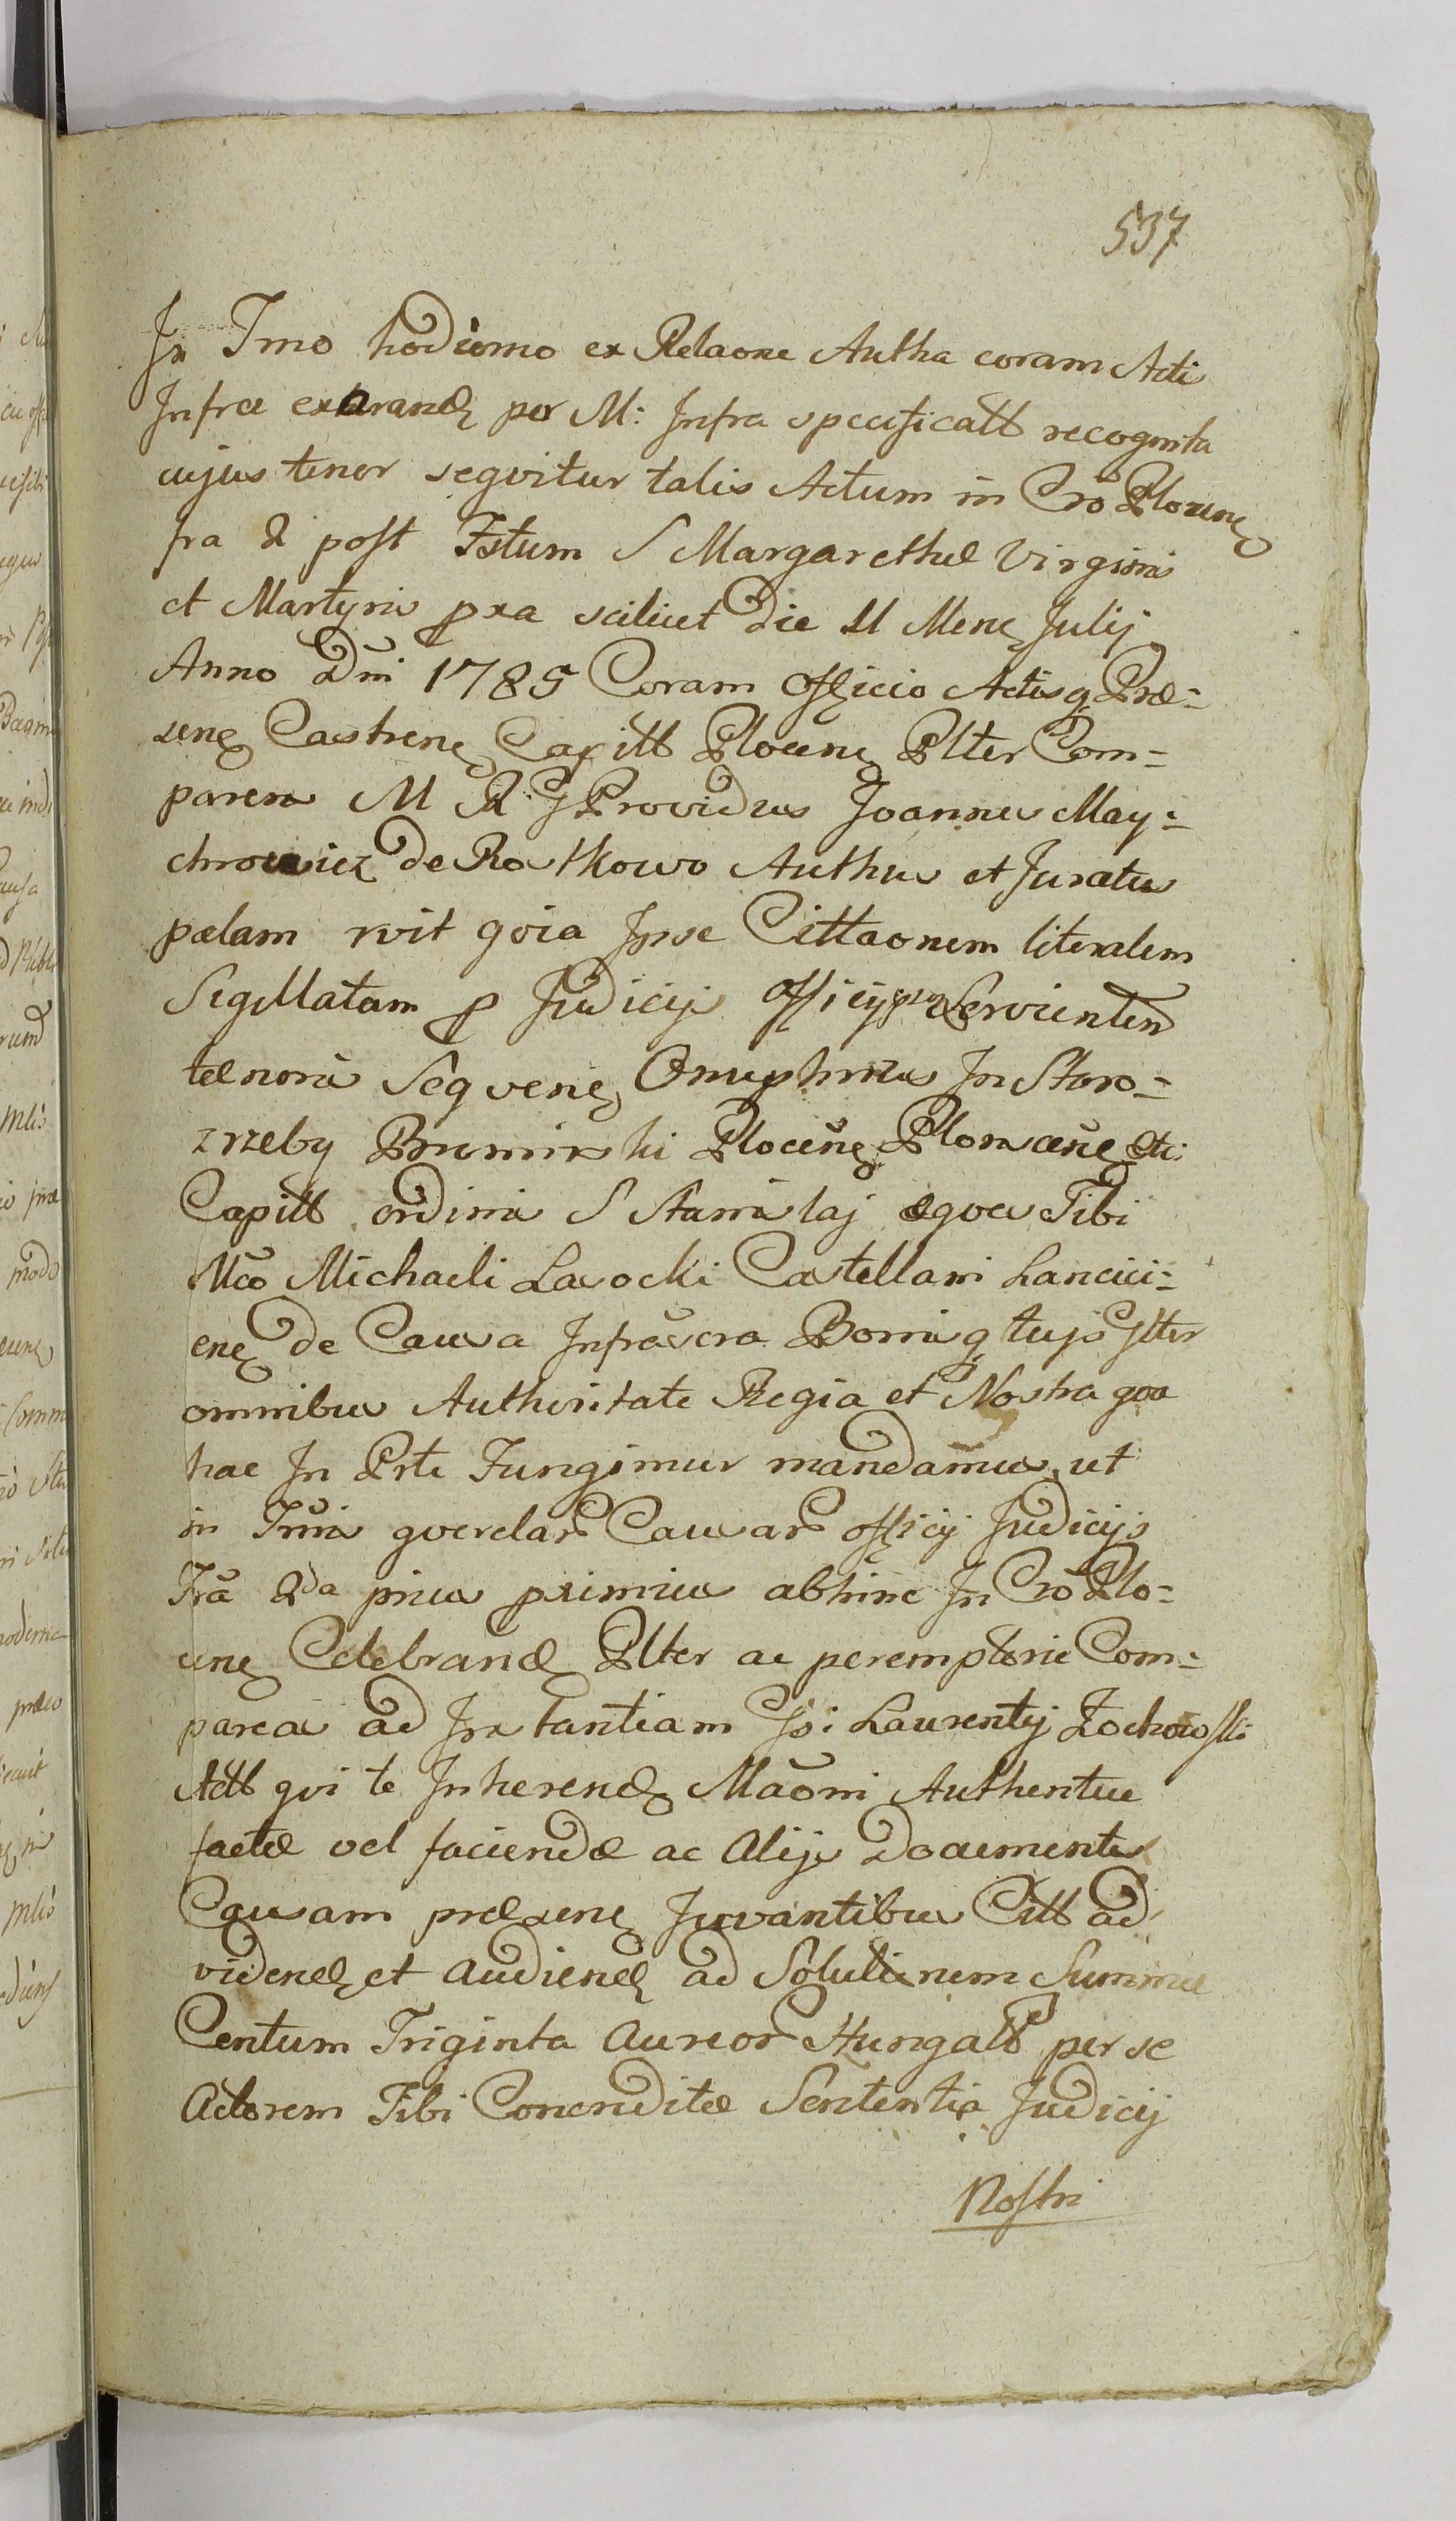 537
In Tmo hodierno ex Relaone Autha coram Actis
Infra exarand per M: Infra specificatt recognita
cujus tenor seqvitur talis Actum in Cro Plocen
fra 2 post Fstum S Margarethæ Virginis
et Martyris pxa scilicet die 11 Mens Julij
Anno Dni 1785 Coram Officio Actisq Præ-
sens Castrens Capitt Plocens Plter Com-
parens M R G Providus Joannes May-
chrowicz de Rostkowo Authus et Juratus
palam rvit qvia Ipse Cittaonem literalem
Sigillatam p Judicijs Officij pro Servienten
tænoris Seqvens Onuphrius In Staro-
zrzeby Bromirski Plocens Plonscens etc:
Capitt ordinis S Stanislaj Eqves Tibi
Mco Michaeli Lasocki Castellani Lancici-
ens de Causa Infrascra Bonisq tujs Glter
omnibus Authoritate Regia et Nostra qva
hac In Prte Fungimur mandamus, ut
in Tmis qverelar Causar officij Judicijs
Fra 2da prius pximius abhinc In Cro Plo-
cens Celebrand Plter ac peremptorie Com-
pareas ad Instantiam Gsi Laurentij Zochowski
Actt qvi te Inherend Maoni Authenticæ
factæ vel faciendæ ac Alijs Documentis
Causam præsens Juvantibus Citt ad
vidend et Audiend ad Solutionem Summæ
Centum Triginta Aureor Hungall per se
Actorem Tibi Concreditæ Sententia Judicij
Nostri